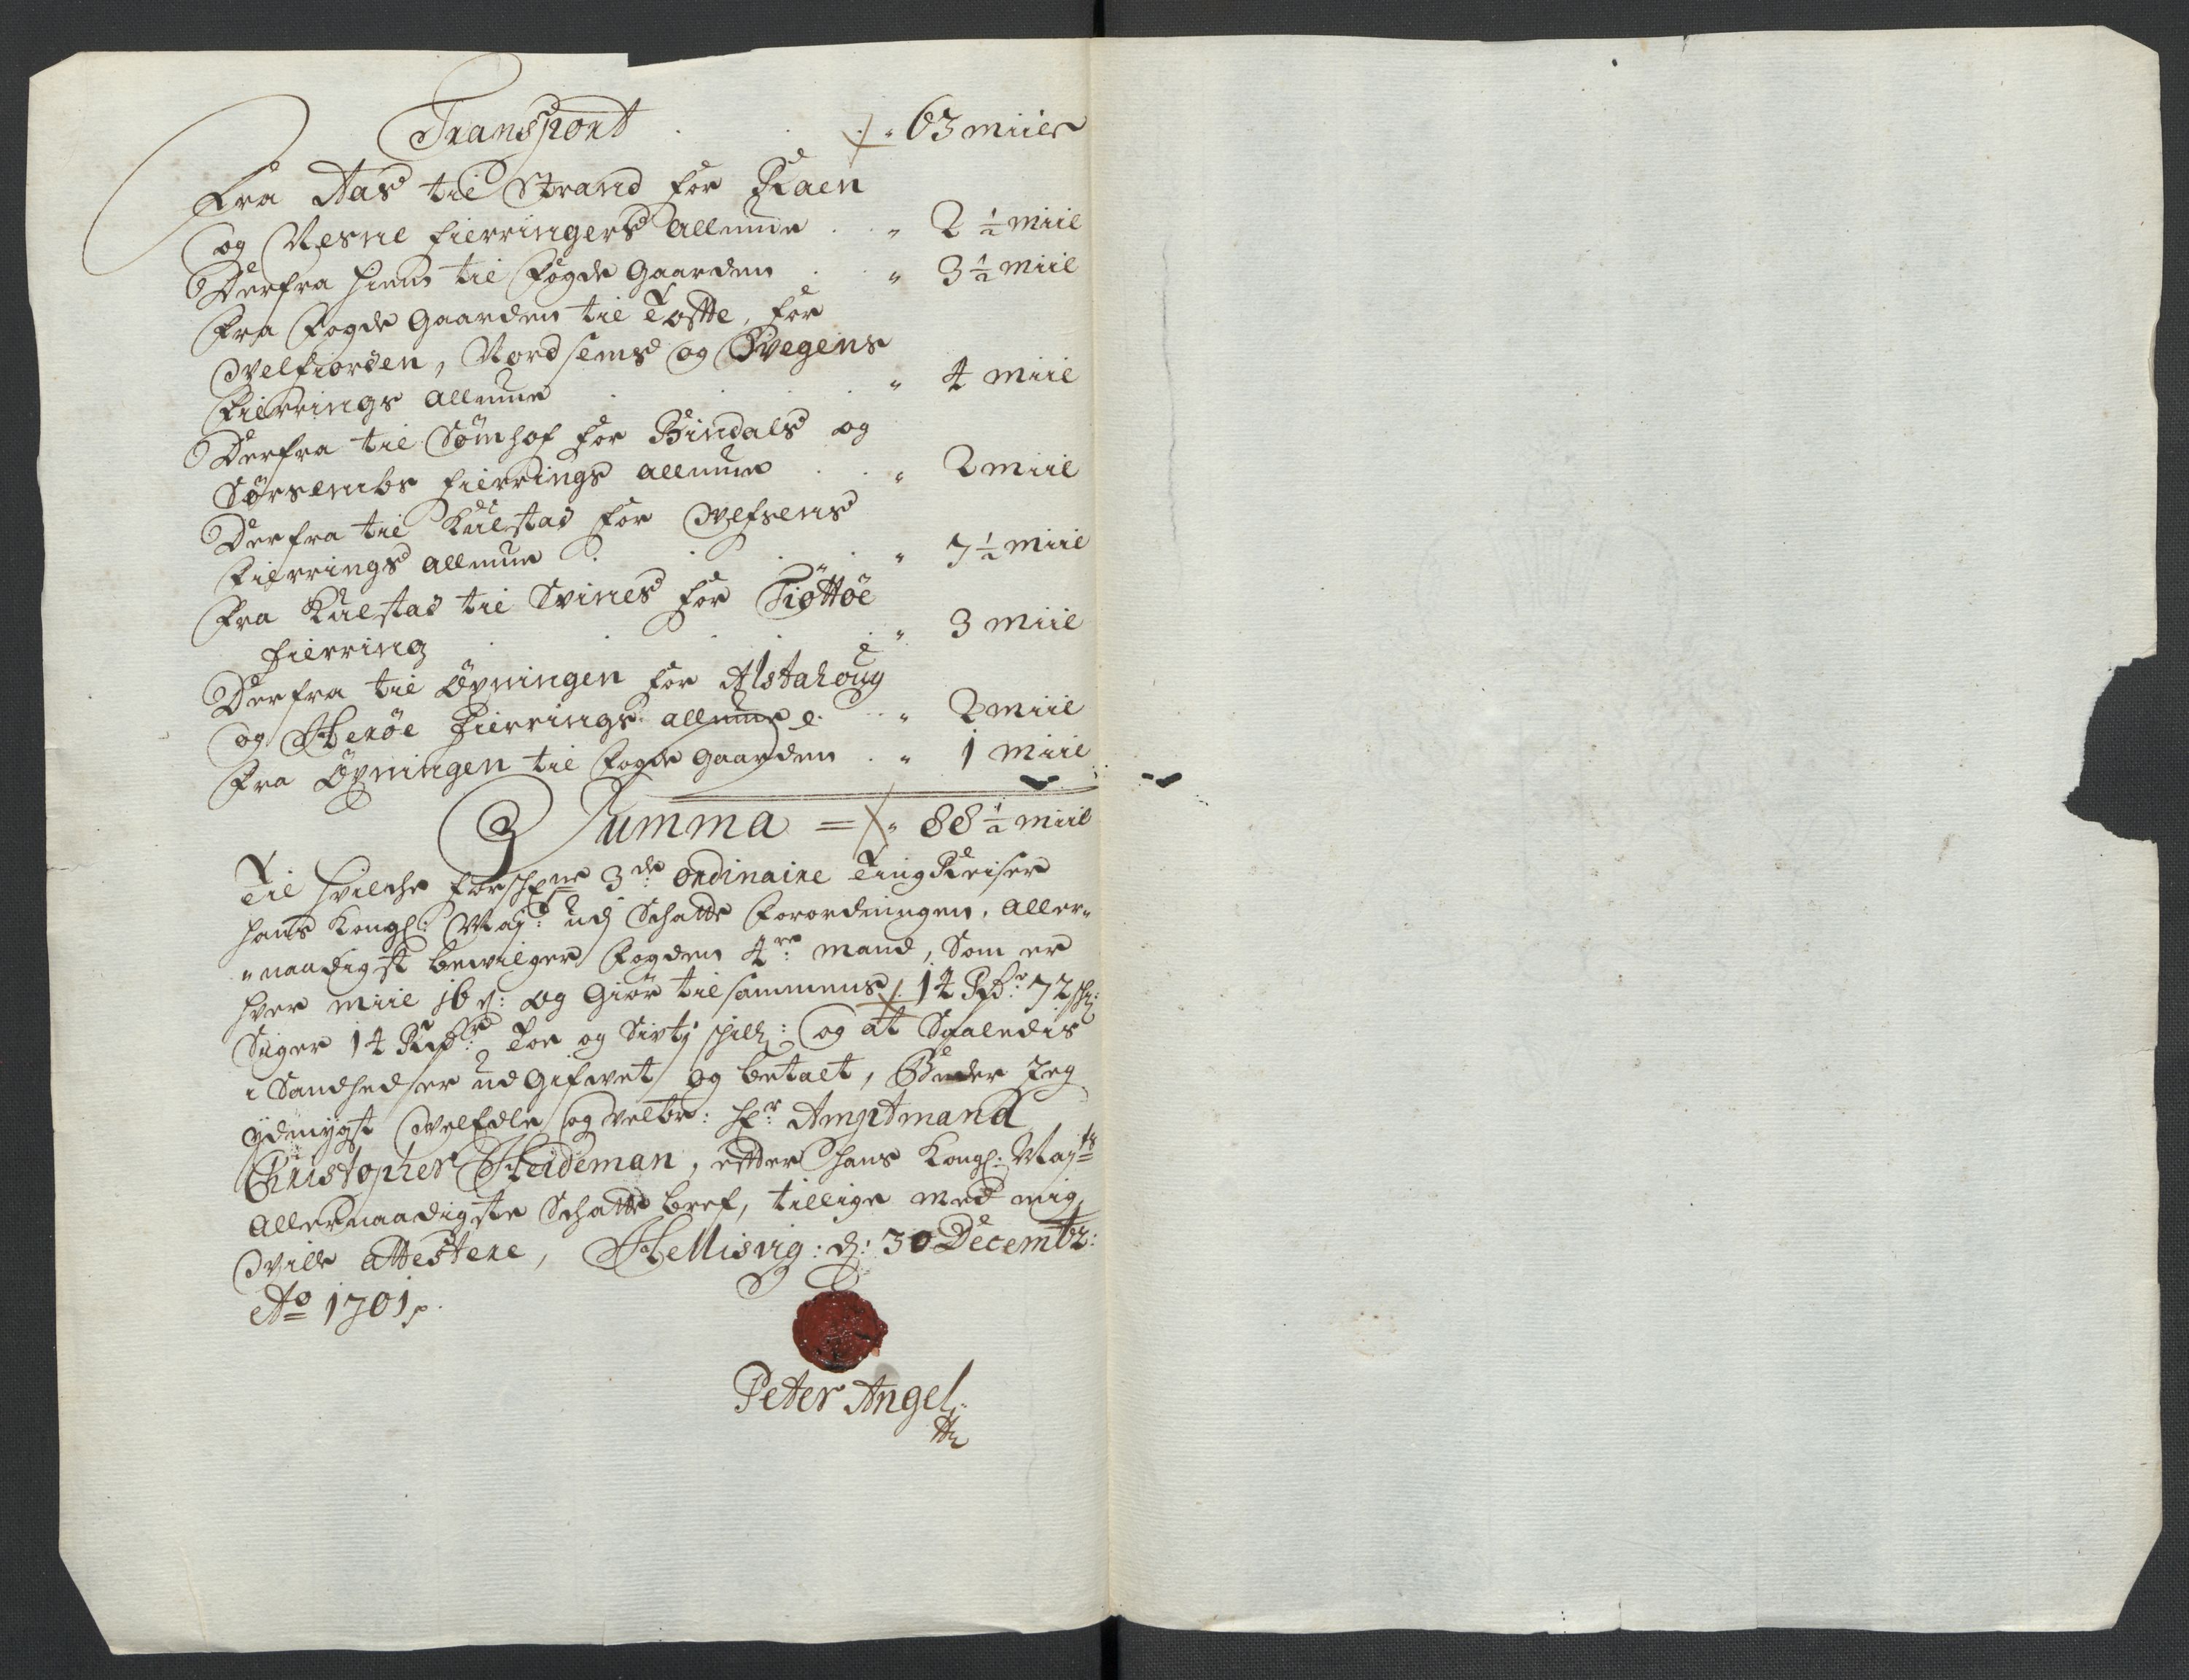 Transport . . . „ 63 miiler
Fra Aas til Strand for Raen
og Nesne fierringers Allmue . . „ 2 ½ miil
Derfra hiem til Fogde Gaarden . . „ 3 ½ miil
Fra Fogde Gaarden til Tofte, for
Welfiorden, Nordsems og Wegens
Fierrings Allmue . . . „ 4 miil
Derfra til Sømhof for Bindals og
Sørsembs fierrings Allmue . . „ 2 miil
Derfra til Kulstad for Wefsens
Fierrings Allmue . . . . „ 7 ½ miil
Fra Kulstad til Svines for Tiøttøe
fierring . . . . „ 3 miil
Derfra til Øvningen for Alstahoug
og Herøe Fierrings Allmue . . „ 2 miil
Fra Øvningen til Fogde Gaarden . „ 1 miil
Summa = „ 88 ½ miil
Til hvilche forschrne 3de ordinaire Ting Reiser
Hans Kongl: Mayt: udj Schatte Forordningen, Aller„
„naadigst bewilger Fogden 4re: Mand, Som er
hver miil 16 s: og Giør tilsammens 14 Rdr: 72 sh:
Siger 14 Rixdr: Toe og Sivtj schill: og at Saaledis
i Sandhed er udGifwet og betalt, Beder Jeg
ydmygst WelEdle og velbr: Hr: Amptmand
Christopher Heideman, efter Hans Kongl: Mayts
Allernaadigste Schatte bref, tillige med mig
Wille Attestere, Hellisvig: d: 30 Decembr:
Ao 1701.
Peter Angel